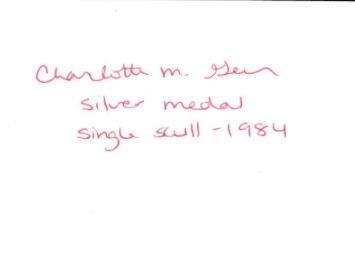 Charlotte M. Geer
silver medal
single scull - 1984